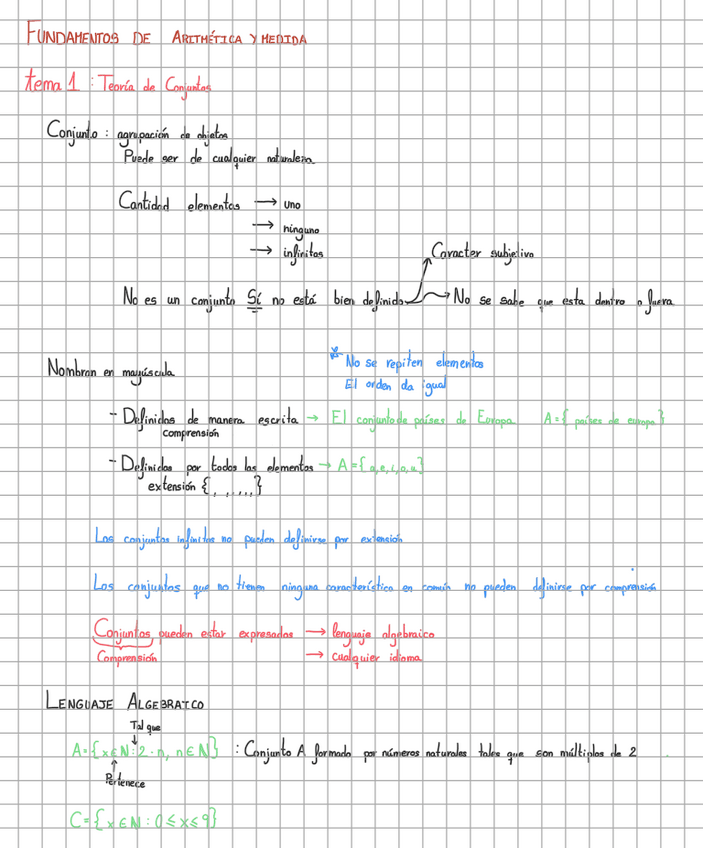 FUNDAMENTOS DE ARITMÉTICA Y MEDIDA
tema 1 : Teoría de Conjuntos
Conjunto : agrupación de objetos
Puede ser de cualquier naturaleza
Cantidad elementos → uno
→ ninguno
→ infinitos
Caracter subjetivo
No es un conjunto Sí no está bien definido → No se sabe que esta dentro o fuera
* No se repiten elementos
El orden da igual
Nombran en mayúscula
- Definidos de manera escrita → El conjunto de países de Europa A={ países de europa }
comprensión
- Definidos por todos los elementos → A={a,e,i,o,u}
extensión { , , , , , }
Los conjuntos infinitos no pueden definirse por extensión
Los conjuntos que no tienen ninguna característica en común no pueden definirse por comprensión
Conjuntos pueden estar expresados → lenguaje algebraico
Comprensión → cualquier idioma
LENGUAJE ALGEBRAICO
Tal que
A={x∈N:2·n, n∈N} : Conjunto A formado por números naturales tales que son múltiplos de 2
Pertenece
C={x∈N:0≤x≤9}